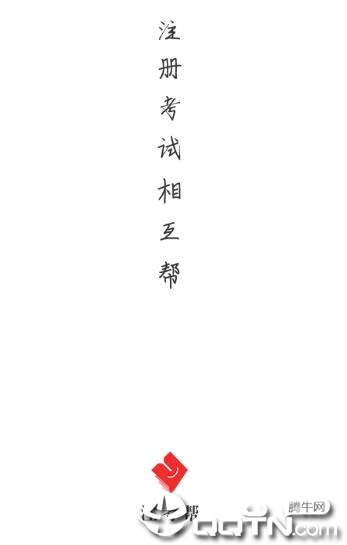 注册考试相互帮
帮
腾牛网
QQTN.com